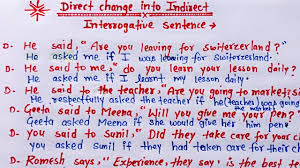 Direct change into Indirect
Interrogative Sentence →
D. He said, "Are you leaving for Switzerzland?"
He asked me if I was leaving for Switzerzland.
D- He said to me, "do you learn your lesson daily?
He asked me if I learnt my lesson daily.
D. He said to the teacher, "Are you going to market, si
He respectfully asked the teacher if he was going the market
D- Geeta said to Meena, "Will you give me your pen?
Geeta asked Meena if she would give him pen
D- you said to Sunil," Did they take care for your c
you asked sunil if they had taken care for their c
D- Romesh says, "Experience, they say, is the best